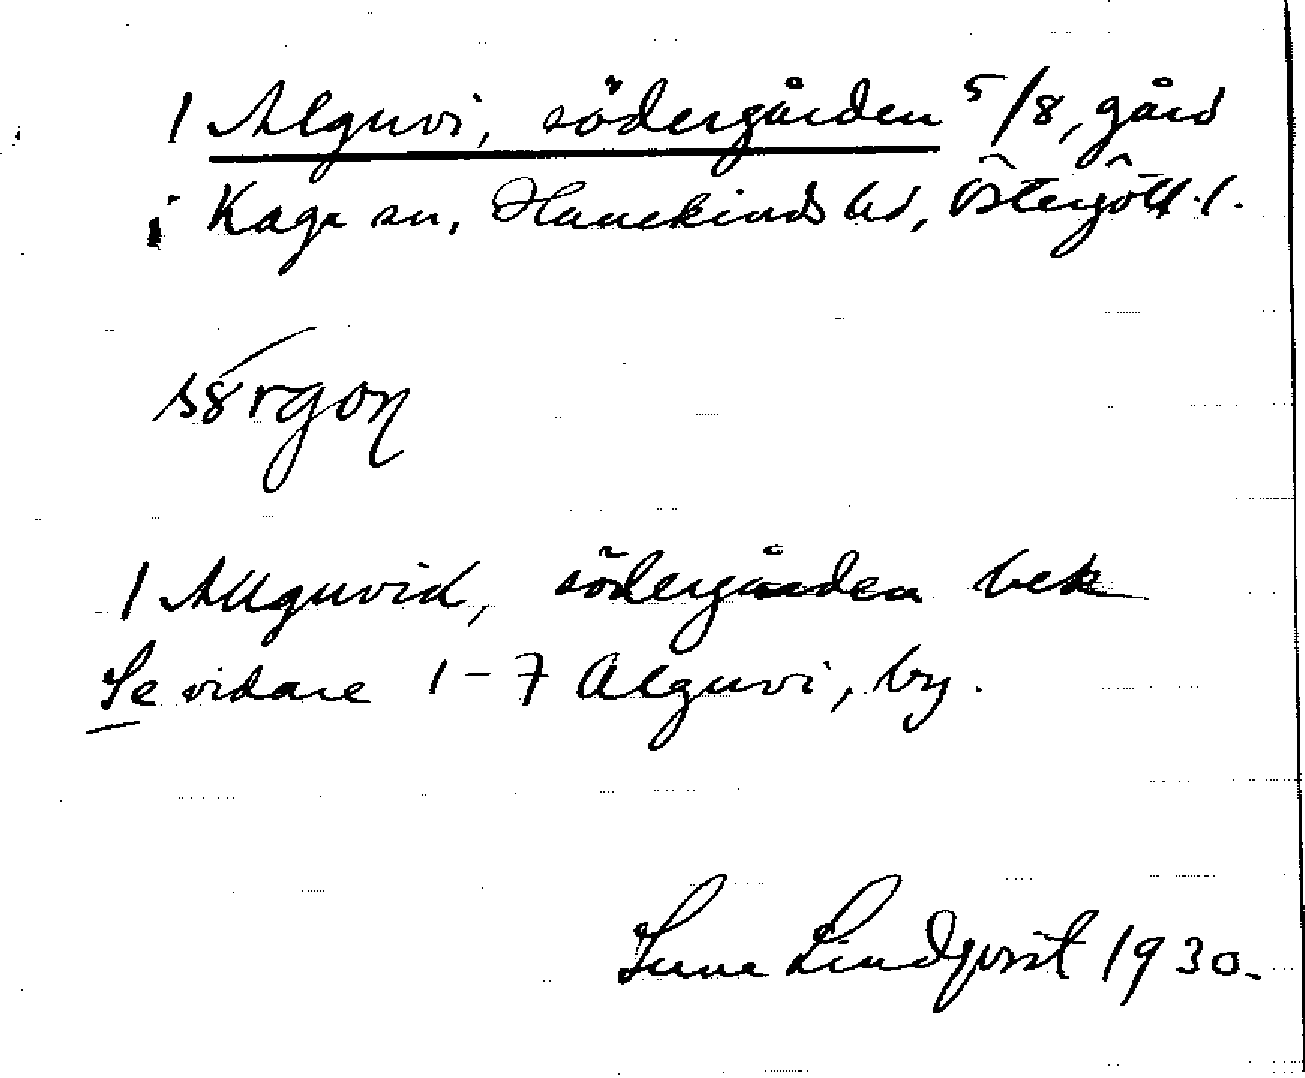 1 Alguvi, södergården 5/8, gård
i Kaga sn, Hanekinds hd, Östergötl. l.
1 Allguvid, södergården bek
Se vidare 1-7 Alguvi, by.
Sune Lindqvist 1930.